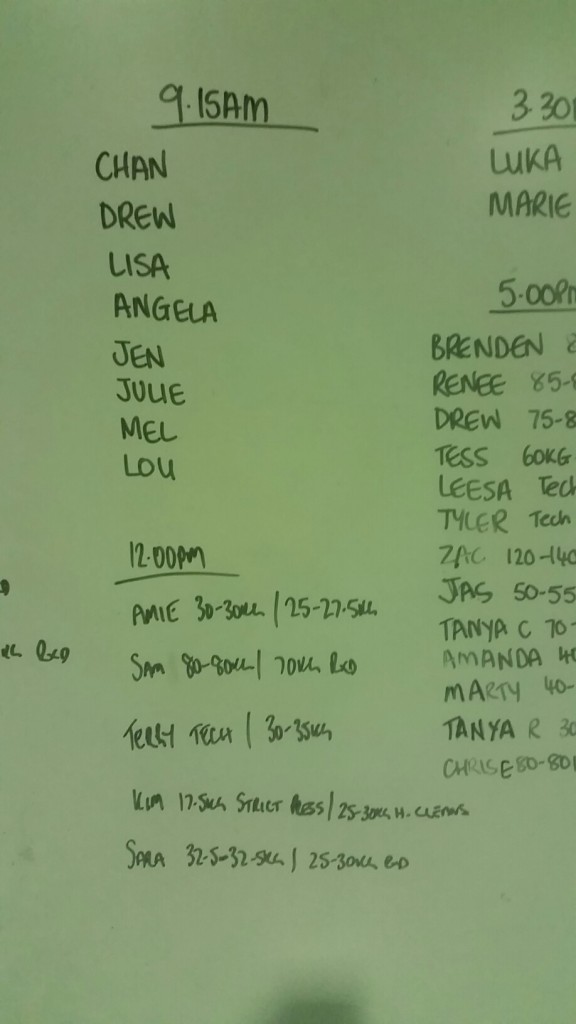 9.15AM
CHAN
DREW
LISA
ANGELA
JEN
JULIE
MEL
LOU
12.00PM
AMIE 30-30KG / 25-27.5KG
SAM 80-80KG / 70KG RXD
TERRY TECH / 30-35KG
KIM 17.5KG STRICT PRESS / 25-30KG H. CLEANS
SARA 32.5-32.5KG / 25-30KG RXD
RXD
3.30
LUKA
MARIE
5.00PM
BRENDEN
RENEE 85-
DREW 75-8
TESS 60KG
LEESA Tech
TYLER Tech
ZAC 120-140
JAS 50-55
TANYA C 70-
AMANDA 40
MARTY 40-
TANYA R 30
CHRIS E 80-80